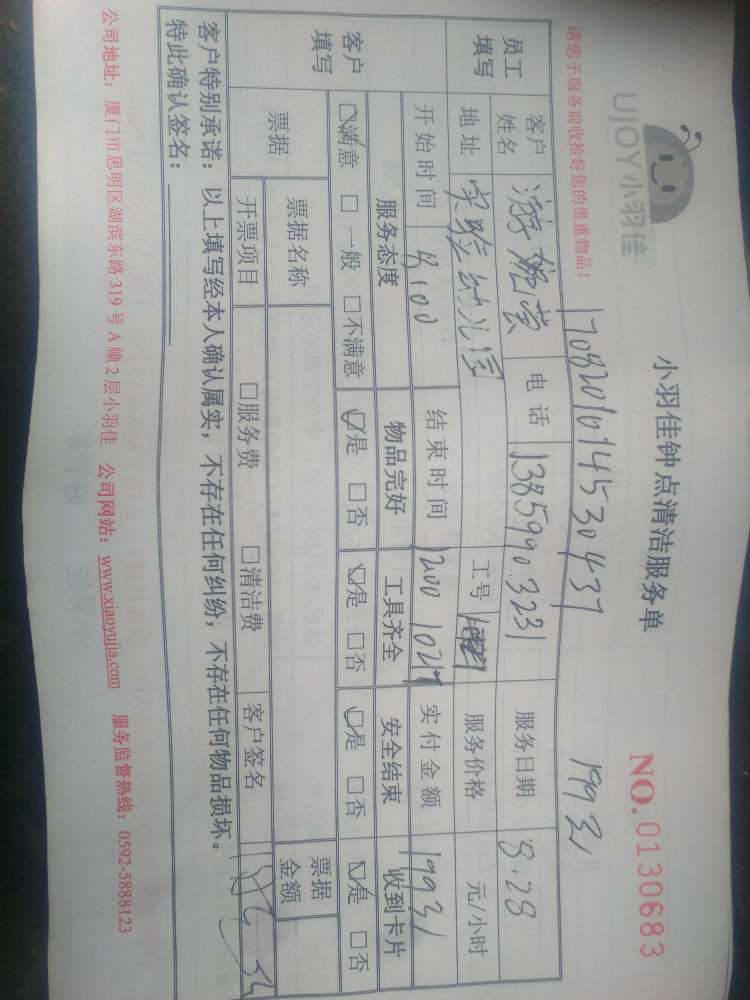 UJOY小羽佳
小羽佳钟点清洁服务单
NO.0130683
请您于服务前收拾好您的贵重物品！
19931
员工填写
客户姓名
电话 13859903231
服务日期 8.28
地址 实验幼儿园
工号
服务价格 元/小时
开始时间 8:00
结束时间 1200
实付金额 19931
客户填写
服务态度 物品完好 工具齐全 安全结束 收到卡片
☑满意 □一般 □不满意 ☑是 □否 ☑是 □否 ☑是 □否 ☑是 □否
票据
票据名称
票据金额
开票项目 □服务费 □清洁费 客户签名
客户特别承诺：以上填写经本人确认属实，不存在任何纠纷，不存在任何物品损坏。
特此确认签名：
公司地址：厦门市思明区湖滨东路319号A幢2层小羽佳 公司网站：www.xiaoyujia.com 服务监督热线：0592-5888123